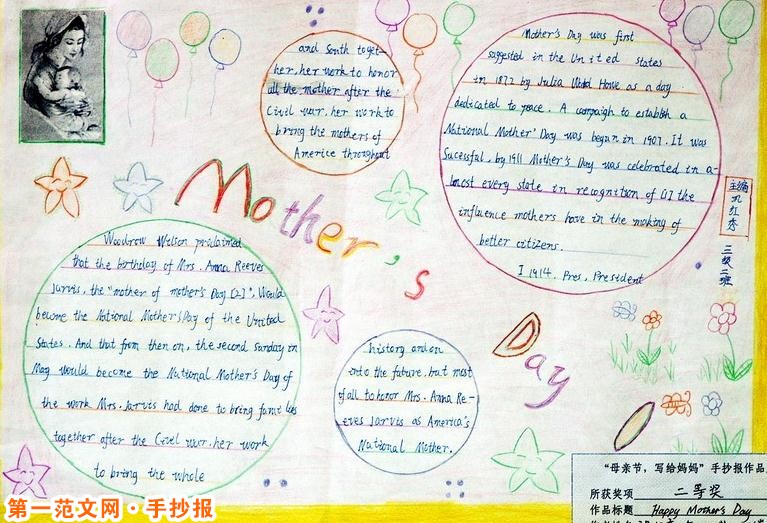 Mother's Day
Mother's Day was first
suggested in the United states
in 1872 by Julia Wald Howe as a day
dedicated to peace. A campaign to establish a
National Mother' Day was begun in 1907. It was
Sucessful, by 1911 Mother's Day was celebrated in a-
lmost every state in recognition of all the
influence mothers have in the making of
better citizens.
I 1914, Pres, President
Woodrow Wilson proclaimed
that the birthday of Mrs. Anna Reeves
Jarvis, the "mother of mother's Day [2]", Would
become the National Mother's Day of the United
States. And that from then on, the second sunday in
May would become the National Mother's Day of
the work Mrs. Jarvis had done to bring families
together after the Civil war, her work
to bring the whole
and South toget-
her, her work to honor
all the mother after the
Civil war, her work to
bring the mothers of
Americe throughout
history and on
into the future, but most
of all to honor Mrs. Anna Re-
eves Jarvis as America's
National Mother.
主编
巩红秀
三级二班
第一范文网·手抄报
"母亲节,写给妈妈"手抄报作品
所获奖项 二等奖
作品标题 Happy Mother's Day